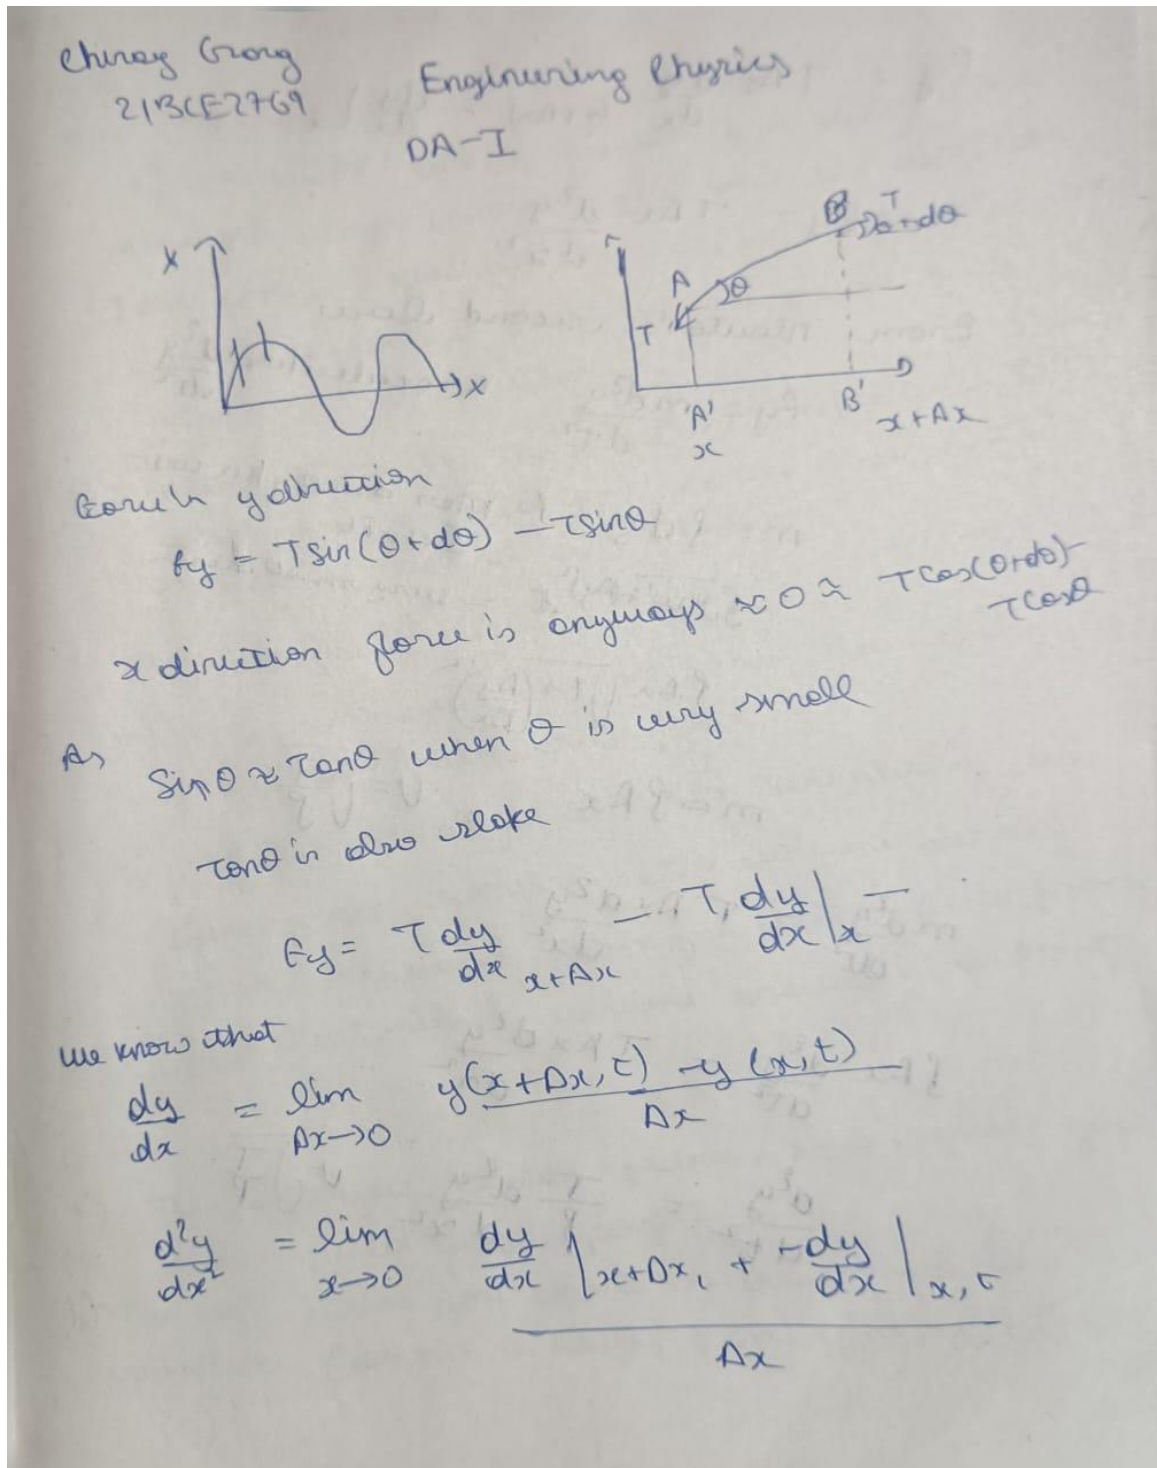 Chirag Garg
Engineering Physics
21BCE2769
DA-I
X
X
A
T
θ
B
T
θ+dθ
A'
x
B'
x+Δx
y direction
Fy = Tsin(θ+dθ) - Tsinθ
x direction force is anyways ≈ 0 ≈ Tcos(θ+dθ) -
Tcosθ
As
Sinθ ≈ Tanθ when θ is very small
Tanθ is also slope
Fy = T dy/dx x+Δx - T dy/dx |x -
We know that
dy/dx = lim Δx→0 y(x+Δx, t) - y(x, t) / Δx
d²y/dx² = lim x→0 dy/dx |x+Δx, + -dy/dx |x, t / Δx